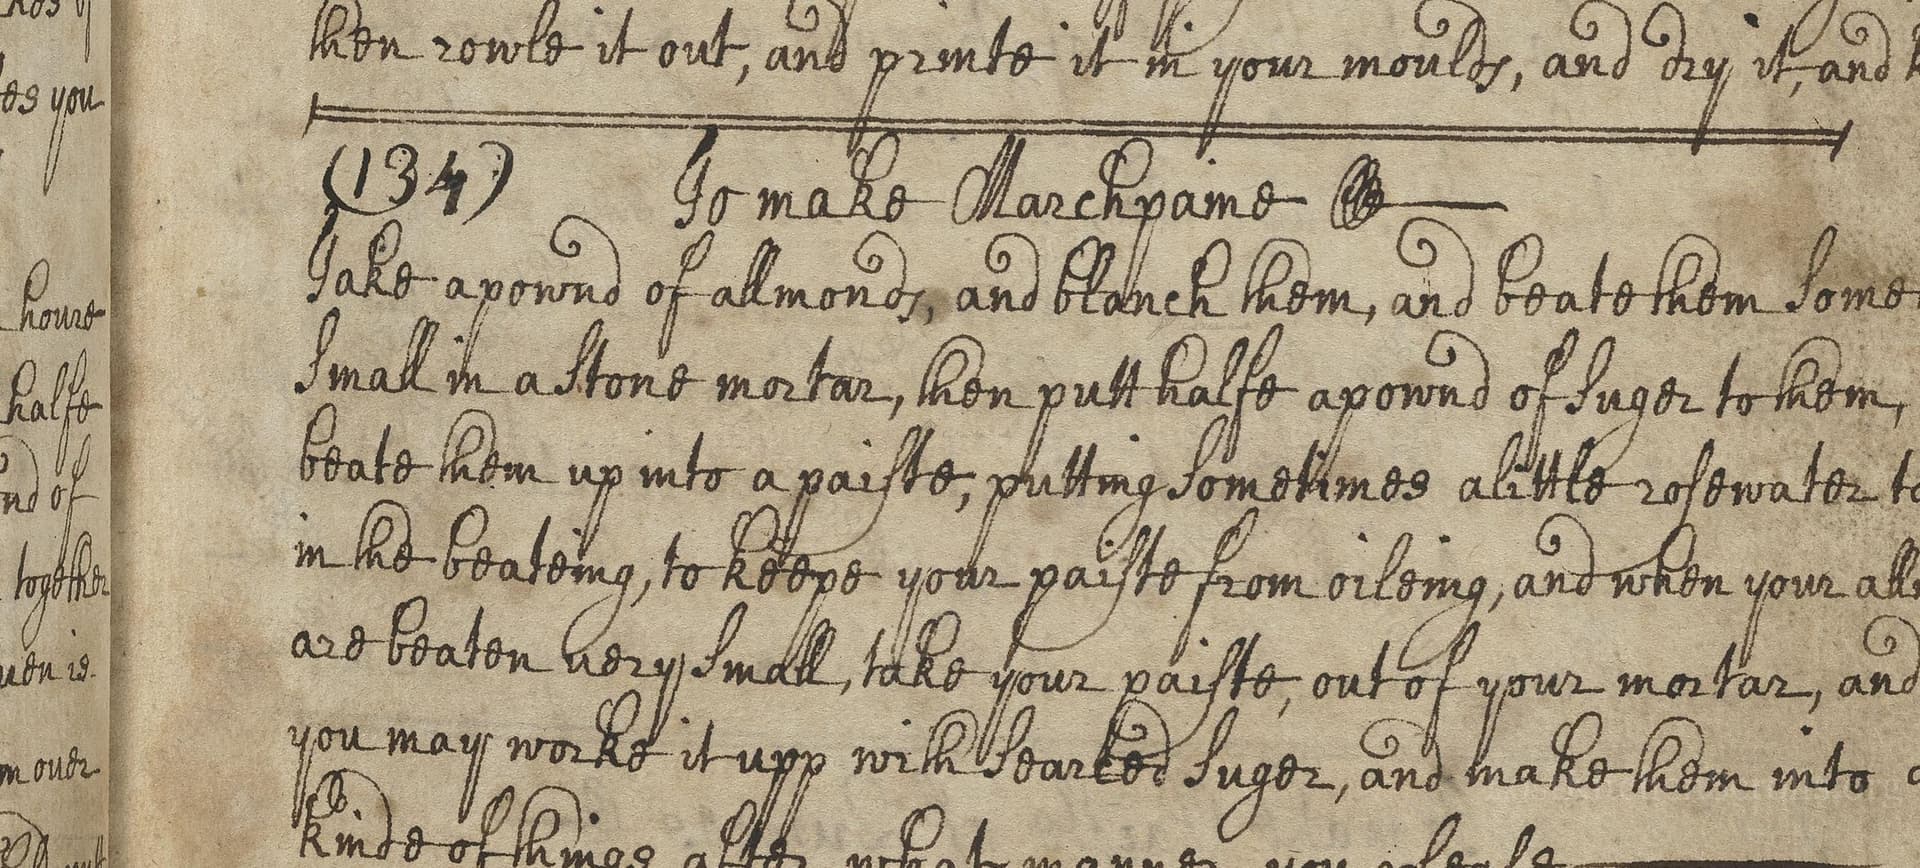 then rowle it out, and printe it in your moulds, and dry it, and
(134) To make Marchpaine
Take a pownd of allmonds, and blanch them, and beate them some
small in a stone mortar, then putt halfe a pownd of suger to them,
beate them up into a paiste, putting sometimes a little rosewater to
in the beateing, to keepe your paiste from oileing, and when your all
are beaten very small, take your paiste, out of your mortar, and
you may worke it upp with searced suger, and make them into
kinde of things after what manner you please
es you
houre
halfe
nd of
together
uen is
m over